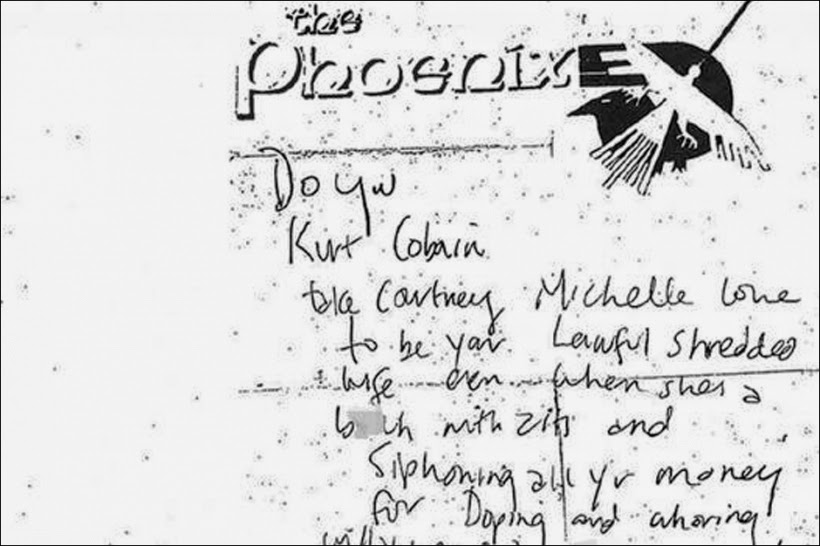 the
Phoenix
Do you
Kurt Cobain
take Cortney Michelle Love
to be your Lawful shredded
wife even when shes a
b ch with zits and
Siphoning all yr money
for Doping and whoring